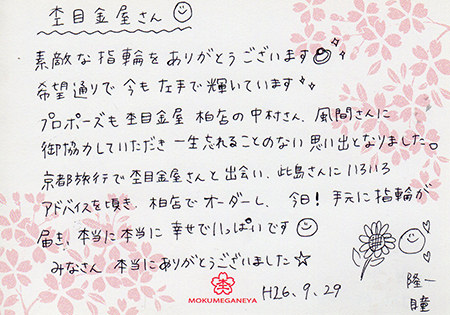 杢目金屋さん
素敵な指輪をありがとうございます
希望通りで今も左手で輝いています
プロポーズも杢目金屋 柏店の中村さん、風間さんに
御協力していただき一生忘れることのない思い出となりました。
京都旅行で杢目金屋さんと出会い、此島さんにいろいろ
アドバイスを頂き、柏店でオーダーし、今日！手元に指輪が
届き、本当に本当に幸せでいっぱいです
みなさん 本当にありがとうございました☆
隆一
瞳
MOKUMEGANEYA
H26.9.29